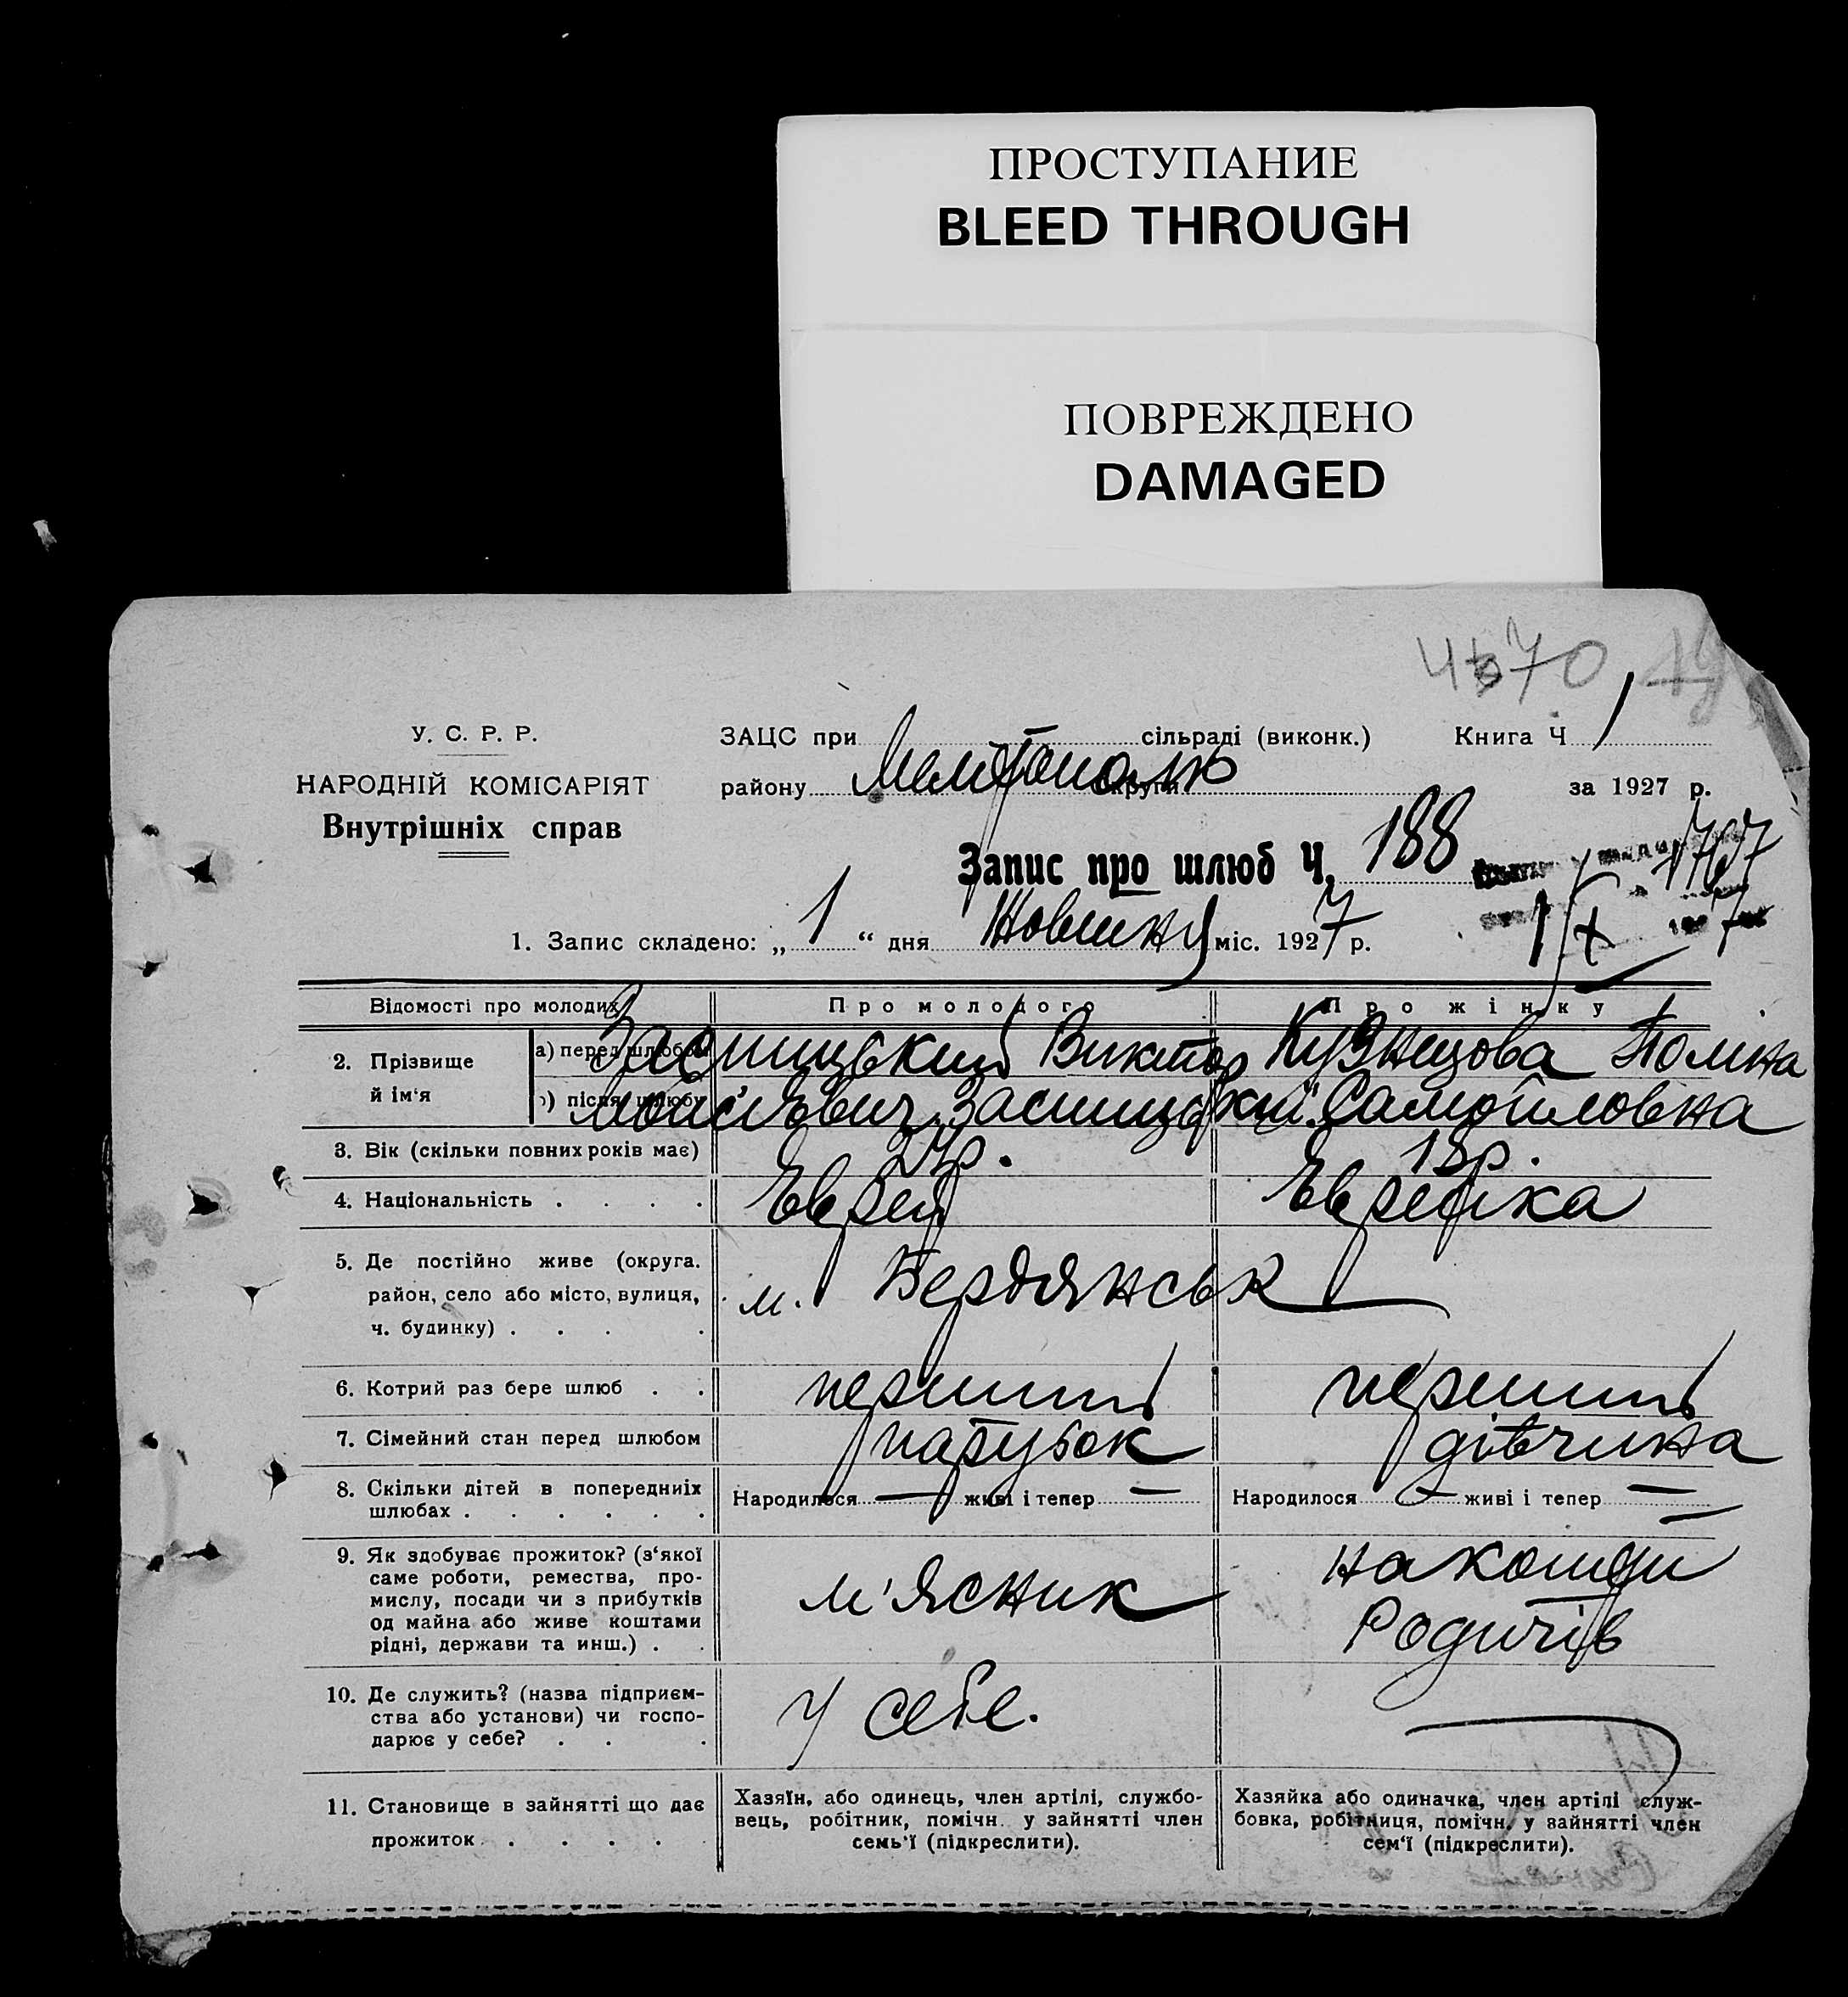 ПРОСТУПАНИЕ
BLEED THROUGH
ПОВРЕЖДЕНО
DAMAGED
4570
У. С. Р. Р.
НАРОДНІЙ КОМІСАРІЯТ
Внутрішніх справ
ЗАЦС при сільраді (виконк.) Книга Ч 1
району Мелітополь округи за 1927 р.
Запис про шлюб Ч. 188
1. Запис складено: „ 1 “ дня Жовтня міс. 1927 р.
Відомості про молодих Про молодого Про жінку
2. Прізвище й ім'я а) перед шлюбом Виктор Кузнецова Поліна
б) після шлюбу Самойловна
3. Вік (скільки повних років має) 24р. 18р.
4. Національність . . . . Єврей Єврейка
5. Де постійно живе (округа.
район, село або місто, вулиця, м. Бердянськ
ч. будинку) . . . .
6. Котрий раз бере шлюб . . перший перший
7. Сімейний стан перед шлюбом парубок дівчина
8. Скільки дітей в попередниїх Народилося — живі і тепер — Народилося — живі і тепер —
шлюбах . . . . . .
9. Як здобуває прожиток? (з'якої на кошти
саме роботи, ремества, про-
мислу, посади чи з прибутків м'ясник
од майна або живе коштами Родичів
рідні, держави та инш.) . .
10. Де служить? (назва підприєм-
ства або установи) чи госпо- у себе.
дарює у себе? . . .
11. Становище в зайнятті що дає Хазяїн, або одинець, член артілі, службо- Хазяйка або одиначка, член артілі служ-
вець, робітник, помічн. у зайнятті член бовка, робітниця, помічн. у зайнятті член
прожиток . . . . . семь'ї (підкреслити). сем'ї (підкреслити).